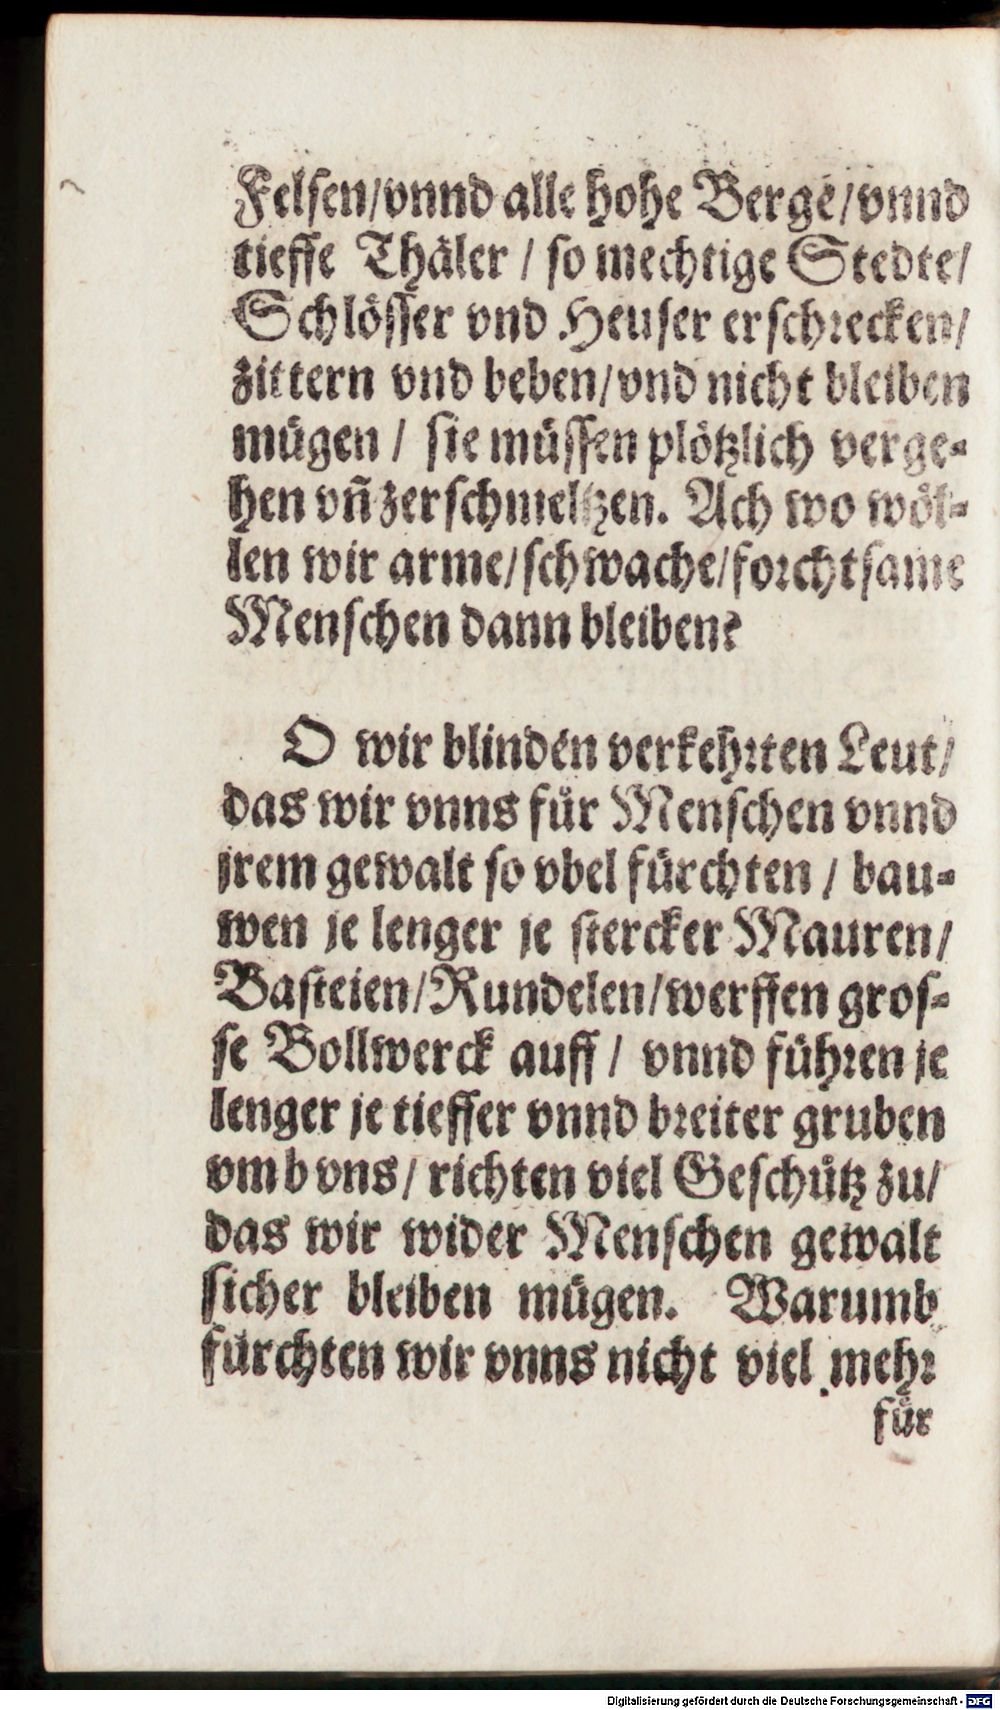 Felsen/vnnd alle hohe Berge/vnnd
tieffe Thäler / so mechtige Stedte/
Schlösser vnd Heuser erschrecken/
zittern vnd beben/vnd nicht bleiben
mügen / sie müssen plötzlich verge-
hen vñ zerschmeltzen. Ach wo wöl-
len wir arme/schwache/forchtsame
Menschen dann bleiben?
O wir blinden verkehrten Leut/
das wir vnns für Menschen vnnd
jrem gewalt so vbel fürchten / bau-
wen je lenger je stercker Mauren/
Basteien/Rundelen/werffen gros-
se Bollwerck auff / vnnd führen je
lenger je tieffer vnnd breiter gruben
vmb vns/ richten viel Geschütz zu/
das wir wider Menschen gewalt
sicher bleiben mügen. Warumb
fürchten wir vnns nicht viel mehr
für
Digitalisierung gefördert durch die Deutsche Forschungsgemeinschaft - DFG